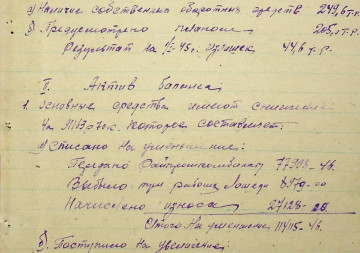 а) Наличие собственных оборотных средств 249,6 т.р.
б) Предусмотрено планом 205,0 т.р.
Результат на 1/I-45г. излишек 44,6 т.р.
V. Актив баланса
1. Основные средства имеют снижение
на которое составляет:
а) Списано на уменьшение:
Передано 77398-46
Выбыло три рабочие лошади 8179-00
Начислено износа 27128-20
Итого на уменьшение 114115-46
б) Поступило на увеличение: